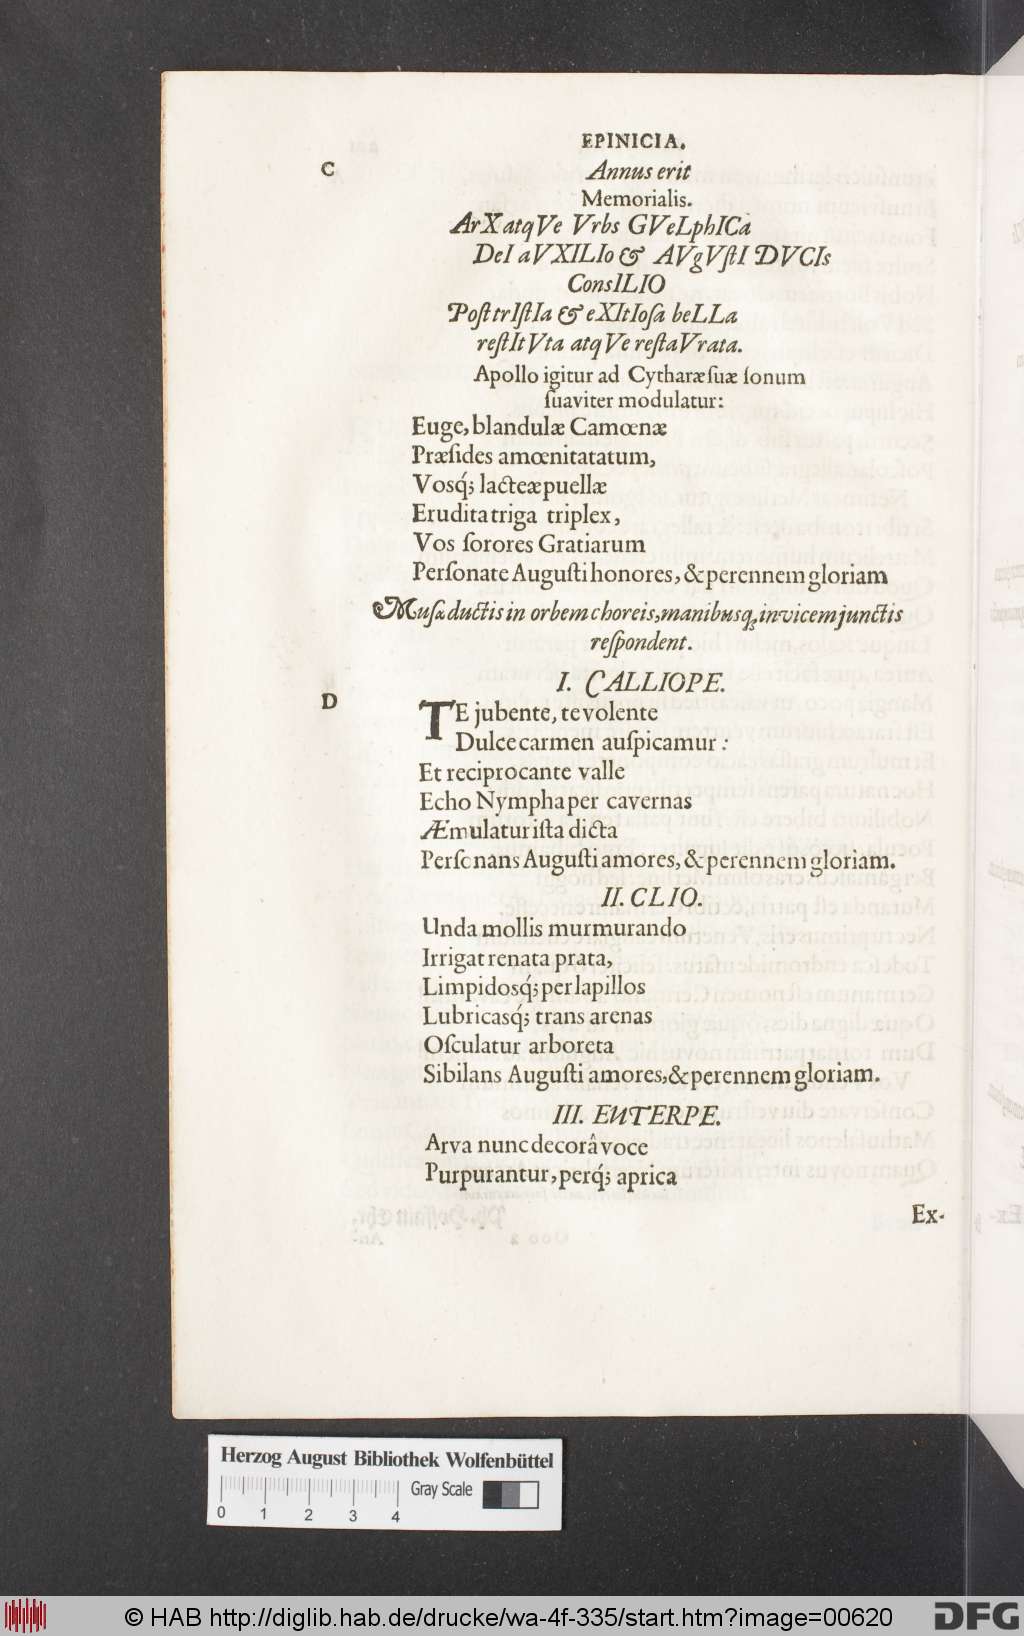 EPINICIA.
C
Annus erit
Memorialis.
ArX atqVe Vrbs GVeLphICa
DeI aVXILIo & AVgVſtI DVCIs
ConsILIO
Poſt trIſtIa & eXItIoſa beLLa
reſtItVta atqVe reſtaVrata.
Apollo igitur ad Cytharæ ſuæ ſonum
ſuaviter modulatur:
Euge, blandulæ Camœnæ
Præſides amœnitatatum,
Vosq́; lacteæ puellæ
Erudita triga triplex,
Vos ſorores Gratiarum
Perſonate Auguſti honores, & perennem gloriam
Muſæ ductis in orbem choreis, manibusq, invicem junctis
reſpondent.
I. CALLIOPE.
D
TE jubente, te volente
Dulce carmen auſpicamur:
Et reciprocante valle
Echo Nympha per cavernas
Æmulatur iſta dicta
Perſonans Auguſti amores, & perennem gloriam.
II. CLIO.
Unda mollis murmurando
Irrigat renata prata,
Limpidosq́; per lapillos
Lubricasq́; trans arenas
Oſculatur arboreta
Sibilans Auguſti amores, & perennem gloriam.
III. EUTERPE.
Arva nunc decorâ voce
Purpurantur, perq́; aprica
Ex-
Herzog August Bibliothek Wolfenbüttel
Gray Scale
0 1 2 3 4
© HAB http://diglib.hab.de/drucke/wa-4f-335/start.htm?image=00620
DFG